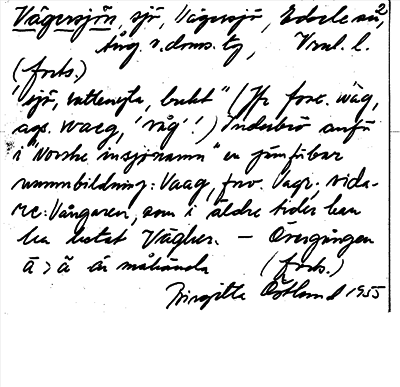 Vägersjön, sjö, Vägersjö, Edsele sn, 2
Ång. s. doms. tg,
(forts.)
sjö, vattenyta, bukt" (Jfr fsax. wāg,
ags. waeg, 'våg'!) Inderbö anför
i "Norske innsjönamn" en jämförbar
namnbildning: Vaag, fno. Vágr, vida-
re: Vångaren, som i äldre tider kan
ha hetat Vāgher. — Övergången
ā > ǟ är måhända (forts.)
Birgitta Östlund 1955